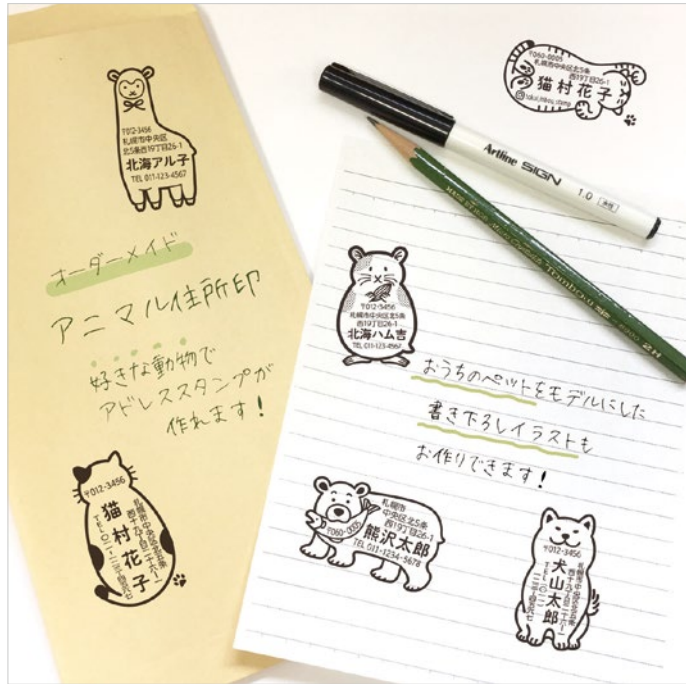 〒012-3456
札幌市中央区
北5条西19丁目26-1
北海アル子
TEL 011-123-4567
オーダーメイド
アニマル住所印
好きな動物で
アドレススタンプが
作れます!
〒012-3456
札幌市中央区北五条
西十九丁目二十六-一
猫村花子
TEL〇一一-一二三-四五六七
〒060-0005
札幌市中央区北5条
西19丁目26-1
猫村花子
Artline SIGN 1.0
Tombow
2H
〒012-3456
札幌市中央区北5条
西19丁目26-1
北海ハム吉
TEL 011-123-4567
おうちのペットをモデルにした
書き下ろしイラストも
お作りできます!
札幌市
中央区北5条
西19丁目26-1
〒060-0005
熊沢太郎
TEL 011-1234-5678
〒012-3456
札幌市中央区北五条
西十九丁目二十六-一
犬山太郎